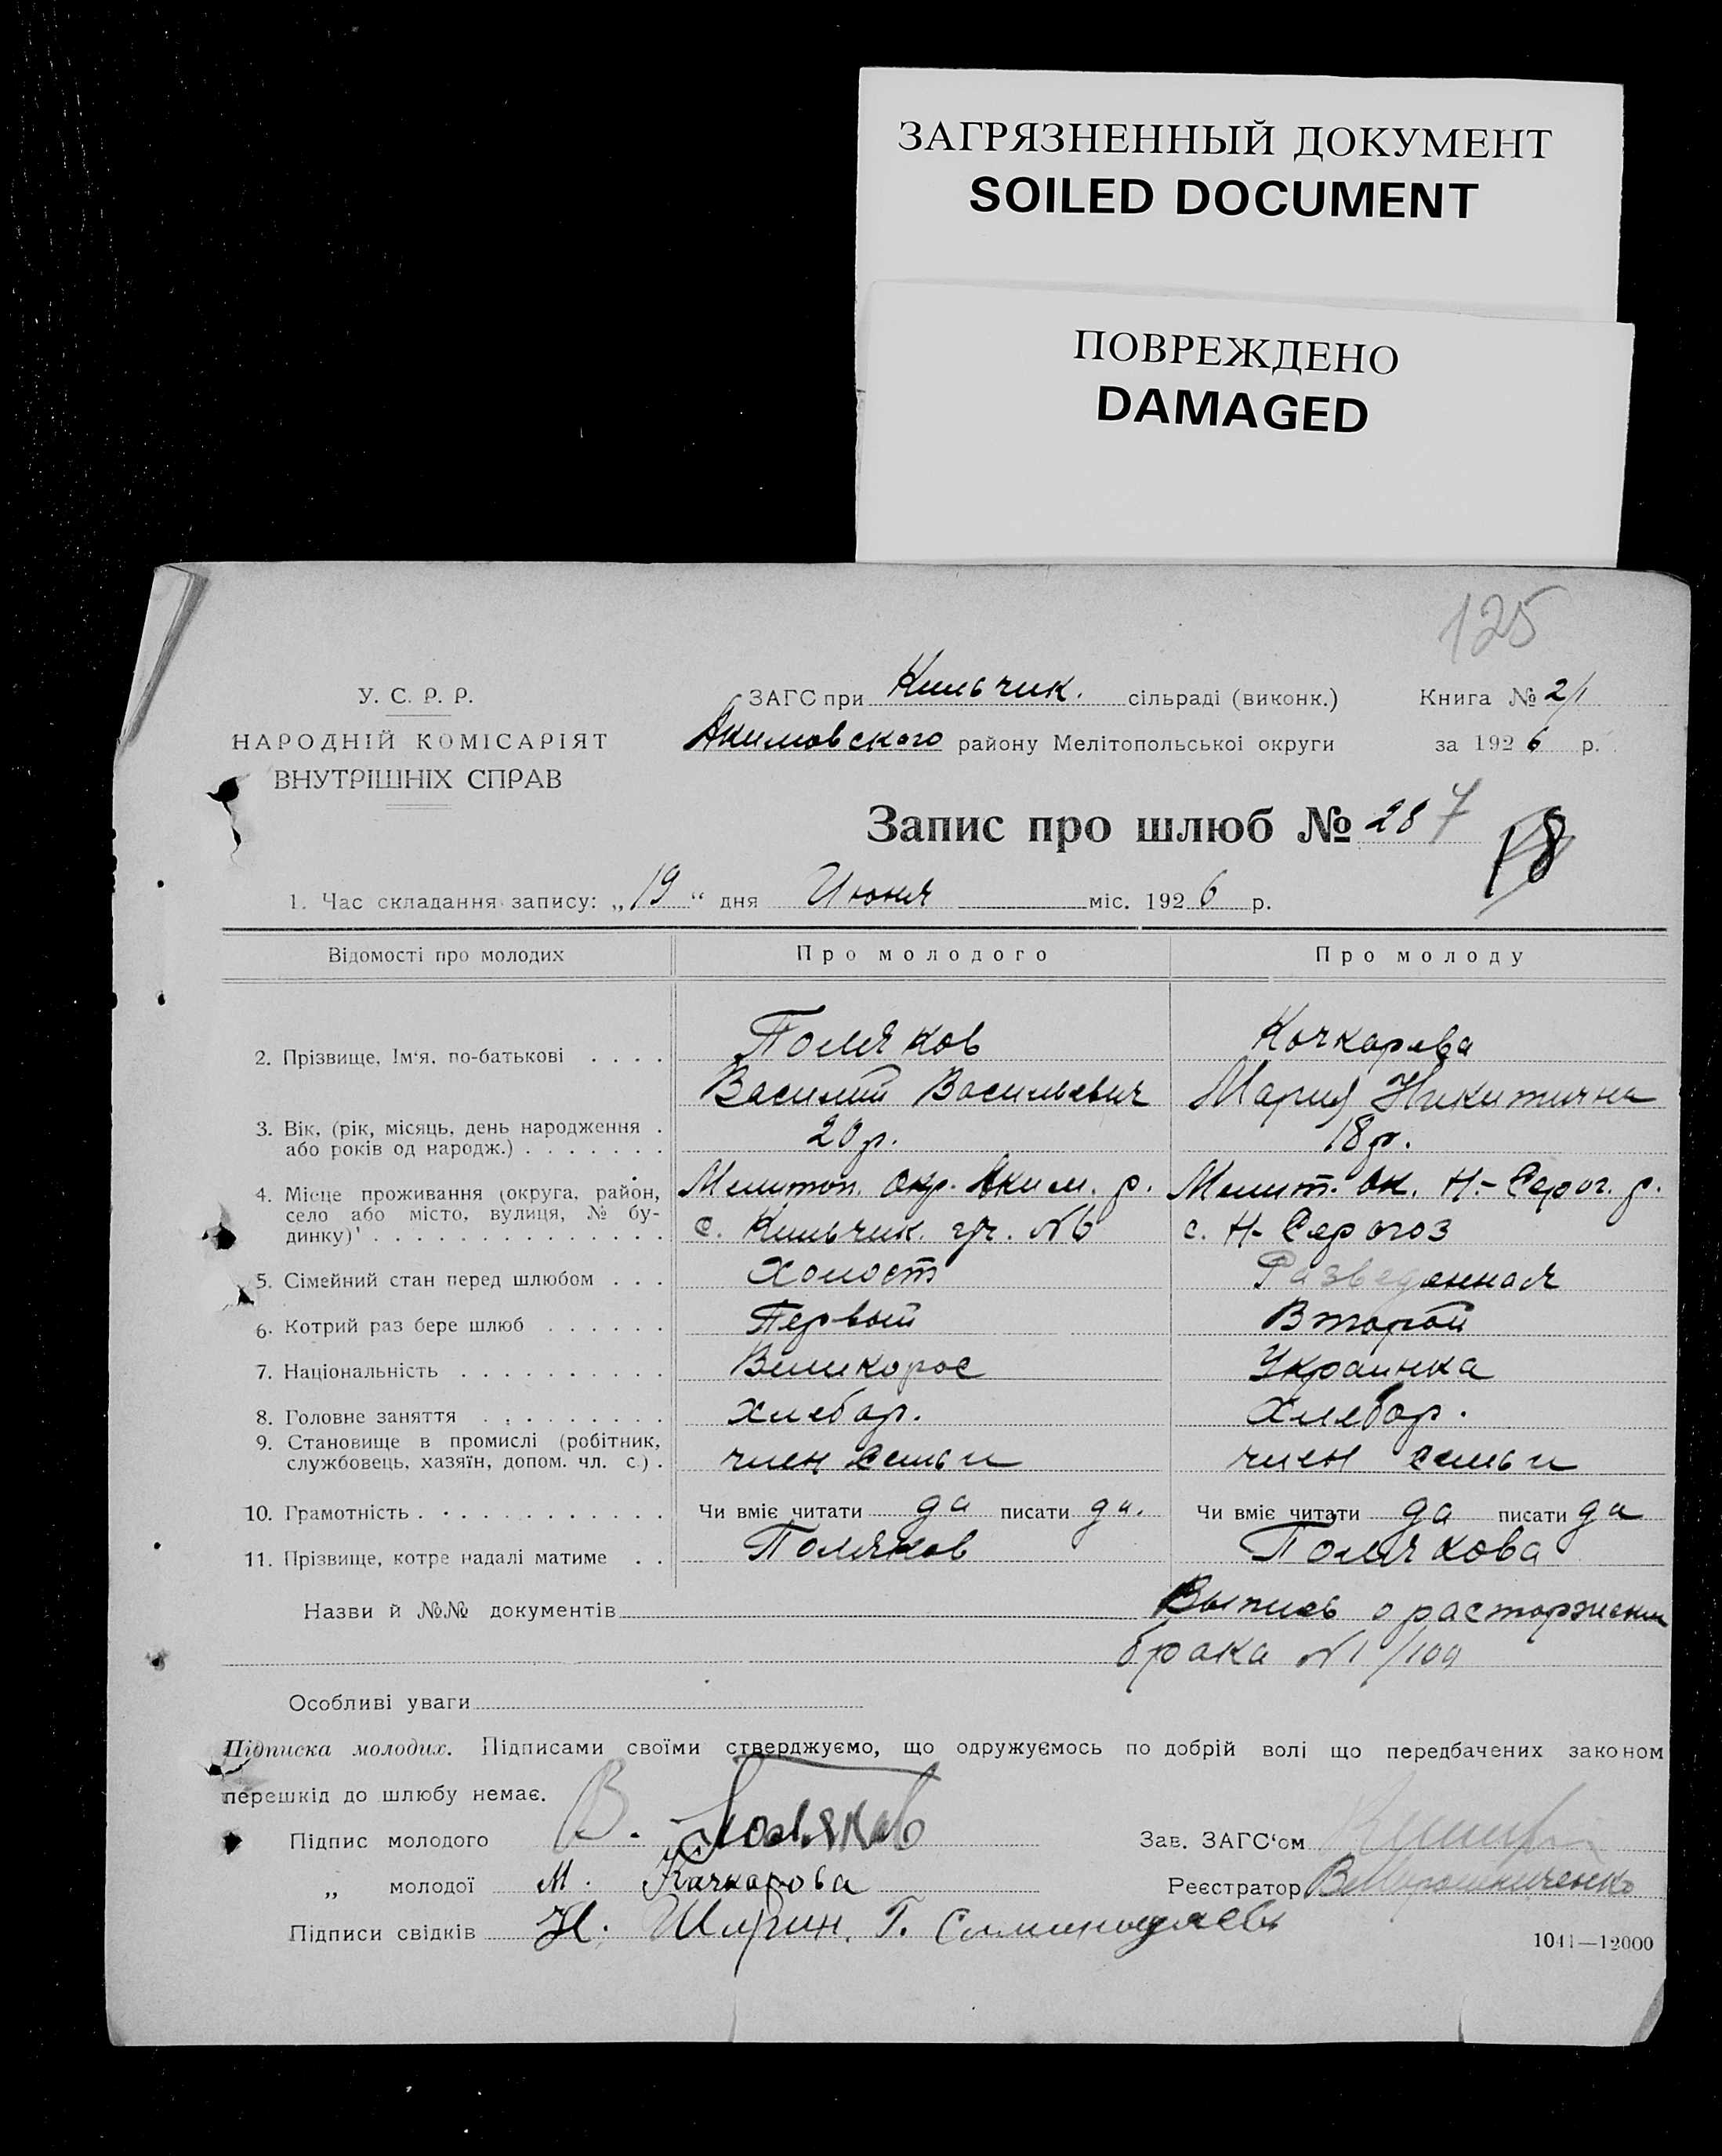 ЗАГРЯЗНЕННЫЙ ДОКУМЕНТ
SOILED DOCUMENT
ПОВРЕЖДЕНО
DAMAGED
125
У. С. Р. Р.
НАРОДНІЙ КОМІСАРІЯТ
ВНУТРІШНІХ СПРАВ
ЗАГС при Кильчик. сільраді (виконк.) Книга № 2/1
Акимовского району Мелітопольської округи за 1926 р.
Запис про шлюб № 287
18
1. Час складання запису: „19“ дня Июня міс. 1926 р.
Відомості про молодих Про молодого Про молоду
2. Прізвище, Ім'я, по-батькові . . . . Поляков Кочкарева
Василий Васильевич Мария Никитична
3. Вік, (рік, місяць, день народження . 20 р. 18 р.
або років од народж.) . . . . . . .
4. Місце проживання (округа, район, Мелитоп. Окр. Аким. р. Мелит. Ок. Н.-Серог. р.
село або місто, вулиця, № бу-
динку) . . . . . . . . . . . . . . с. Кильчик. гр. №6 с. Н-Серогоз
5. Сімейний стан перед шлюбом . . . Холост Разведенная
6. Котрий раз бере шлюб . . . . . . Первый Второй
7. Національність . . . . . . . . . . Великорос Украинка
8. Головне заняття . . . . . . . . . Хлебор. Хлебор.
9. Становище в промислі (робітник,
службовець, хазяїн, допом. чл. с.) . член семьи член семьи
10. Грамотність . . . . . . . . . . . . Чи вміє читати да писати да. Чи вміє читати да писати да
11. Прізвище, котре надалі матиме . . Поляков Полякова
Назви й №№ документів Выпись о расторжении
брака №1/109
Особливі уваги
Підписка молодих. Підписами своїми стверджуємо, що одружуємось по добрій волі що передбачених законом
перешкід до шлюбу немає.
Підпис молодого В. Поляков Зав. ЗАГС'ом
„ молодої М. Качкарова Реєстратор В Мирошниченко
Підписи свідків Н. Ширин. Г.
1041—12000